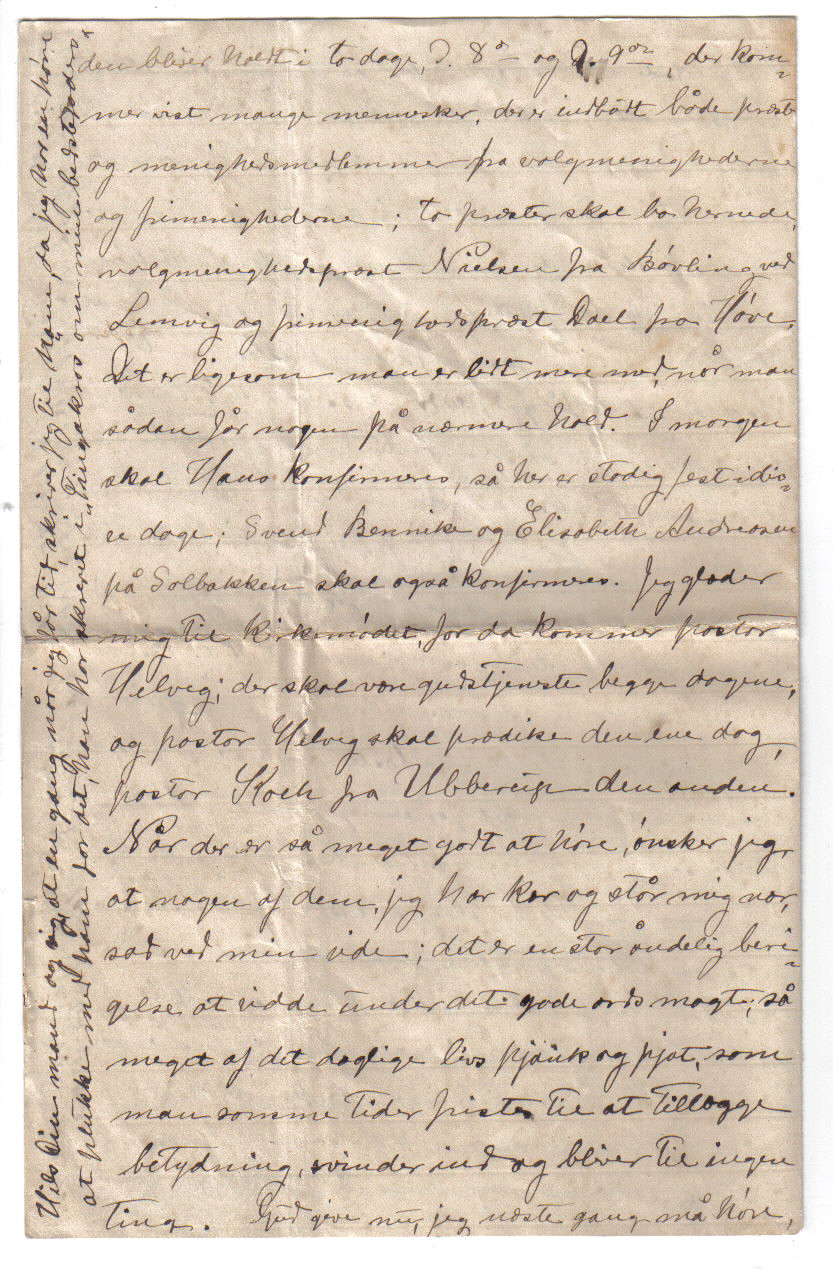 den bliver holdt i to dage, d. 8de og d. 9de, der kom-
mer vist mange mennesker, der er indbudt både præster
og menighedsmedlemmer fra valgmenighederne
og frimenighederne; to præster skal bo hernede,
valgmenighedspræst Nielsen fra Bøvling ved
Lemvig og frimenighedspræst Dael fra Høve.
Det er ligesom man er lidt mere med, når man
sådan får nogen på nærmere hold. I morgen
skal Hans konfirmeres, så her er stadig fest i dis-
se dage; Svend Bennike og Elisabeth Andreasen
på Solbakken skal også konfirmeres. Jeg glæder
mig til kirkemødet, for da kommer pastor
Helveg; der skal være gudstjeneste begge dagene,
og pastor Helveg skal prædike den ene dag,
pastor Koch fra Ubberup den anden.
Når der er så meget godt at høre, ønsker jeg,
at nogen af dem, jeg har kær og står mig nær,
sad ved min side; det er en stor åndelig beri-
gelse at sidde under det gode ords magt; så
meget af det daglige livs pjank og pjat, som
man somme tider fristes til at tillægge
betydning, svinder ind og bliver til ingen
ting. Gud give nu, jeg næste gang må høre,
Hils Din mand og sig at en gang når jeg får tid, skriver jeg til ham, da jeg har en høne
at plukke med ham for det, han har skrevet i om mine bedsteforældre